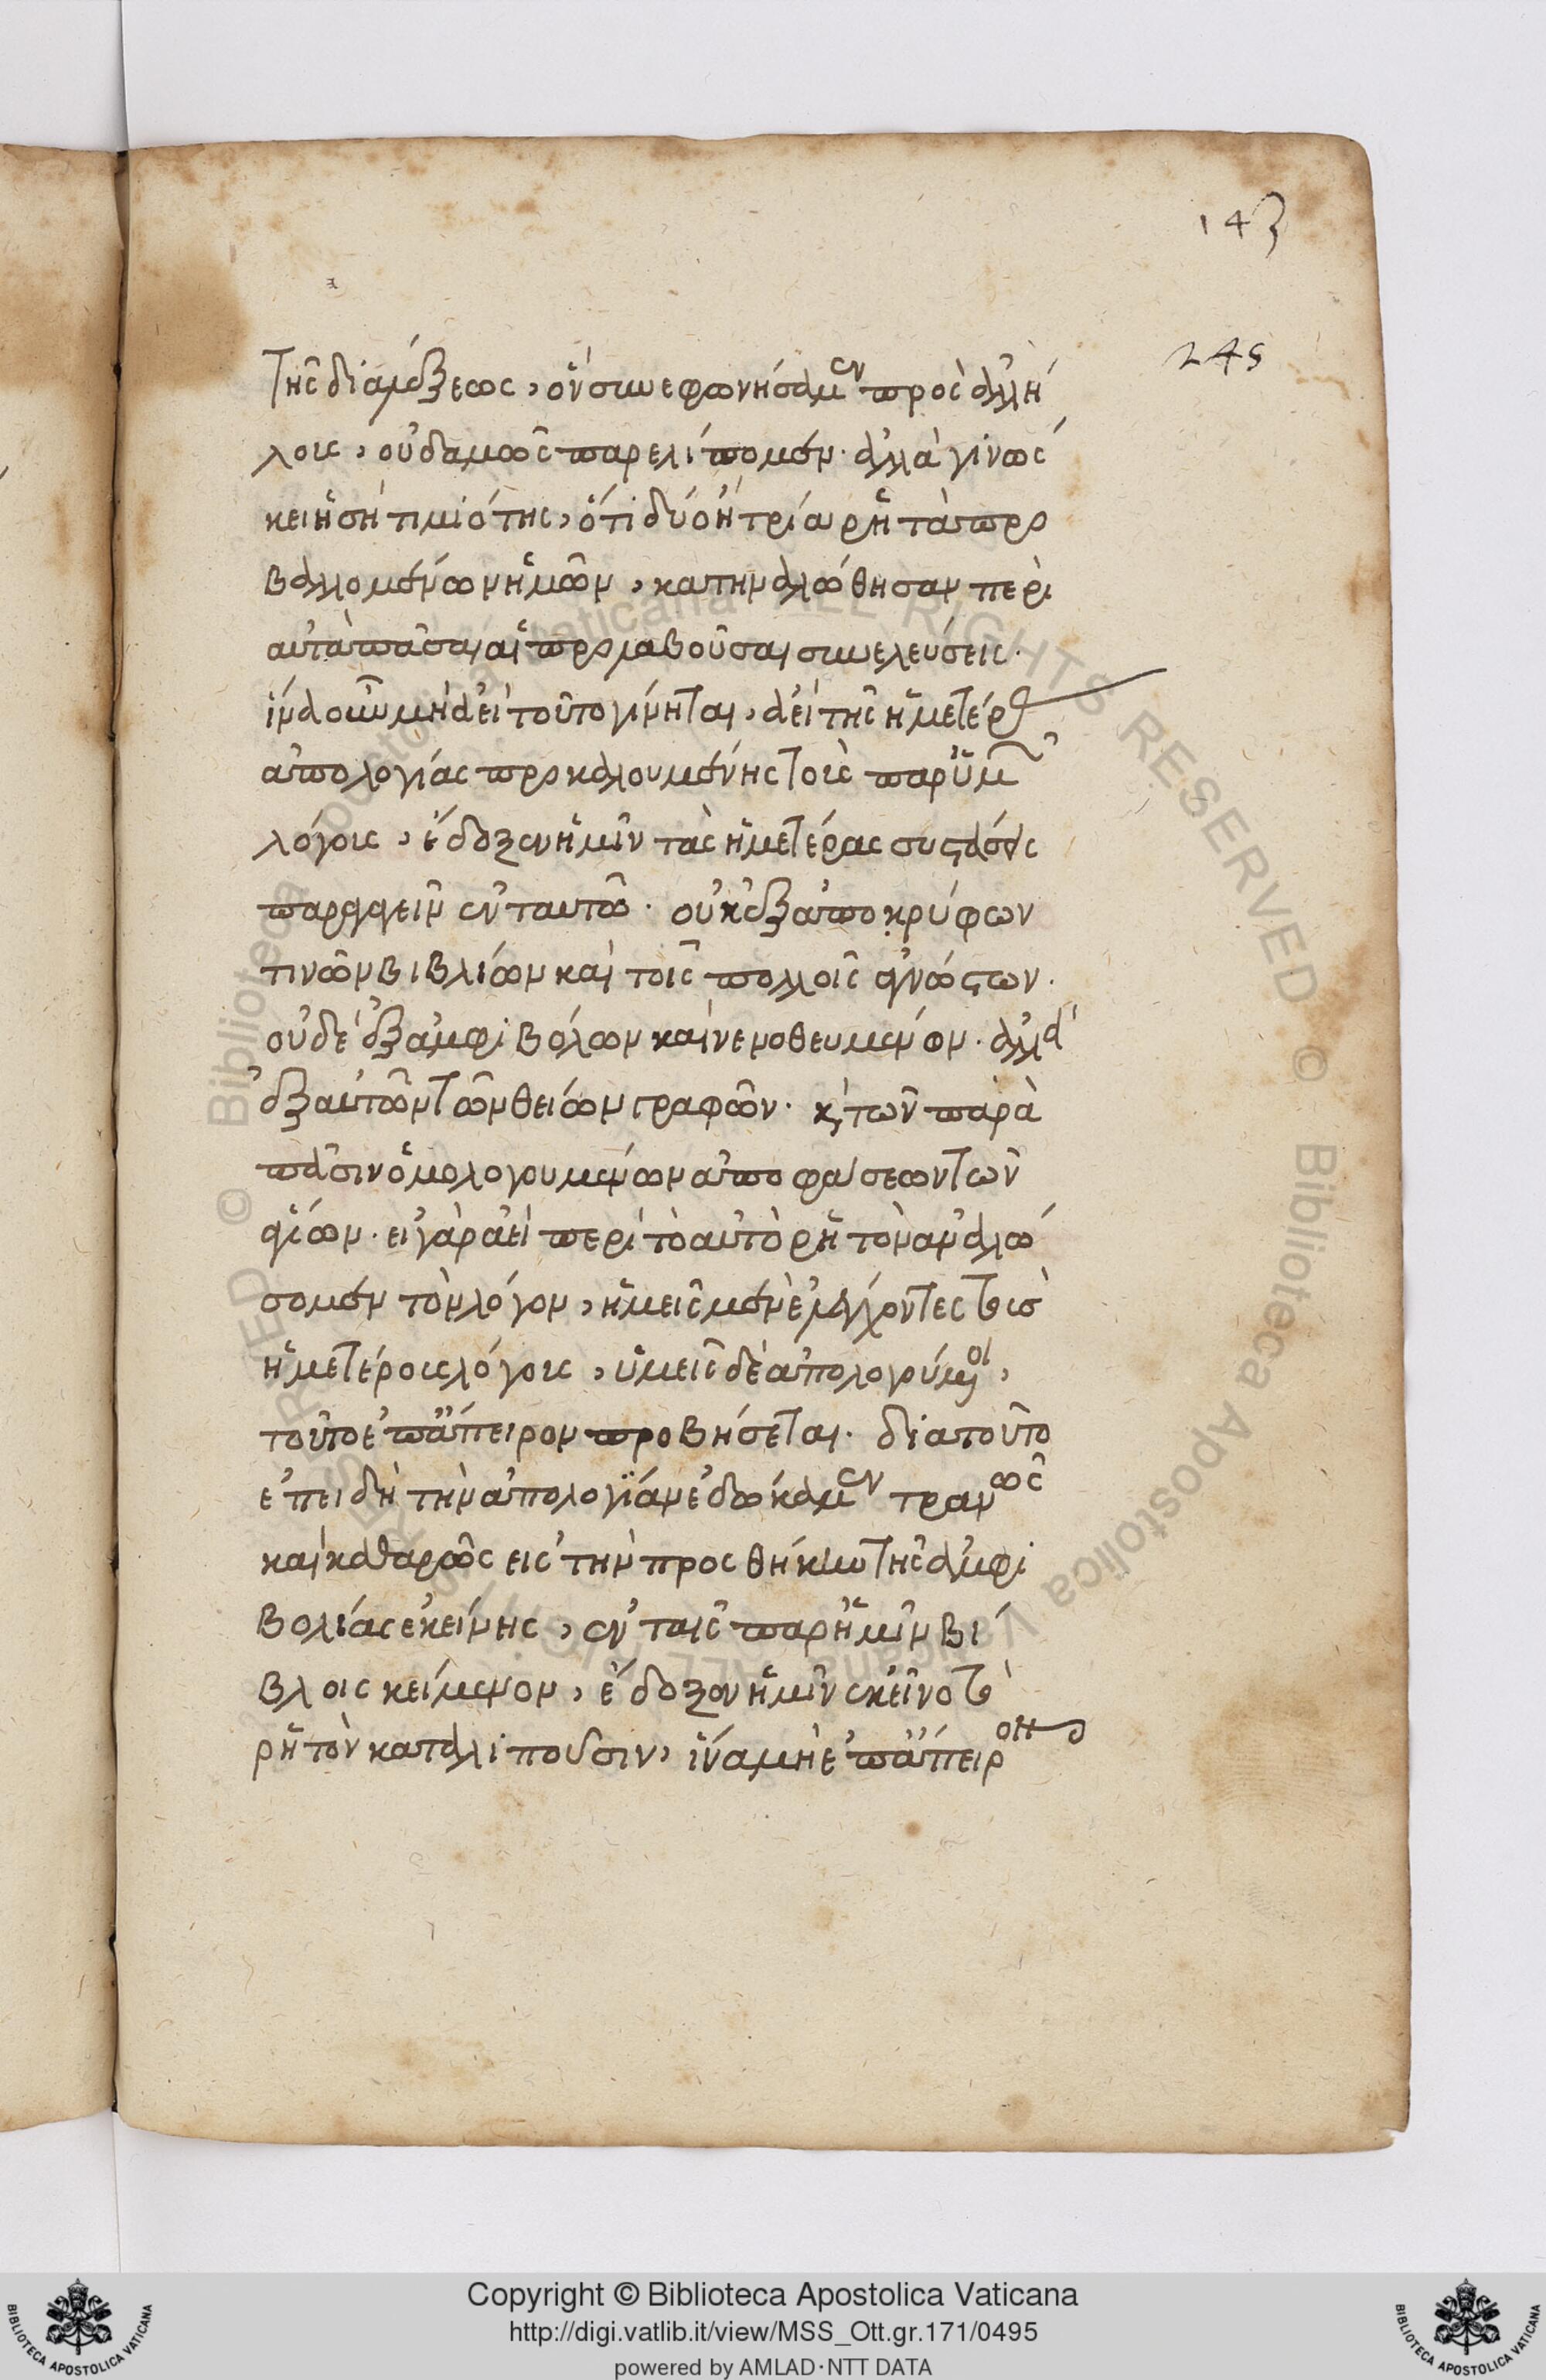 143
245
τῆς διαλέξεως, ὃν συνεφωνήσαμεν πρὸς ἀλλή
λους, οὐδαμῶς παρελίπομεν. ἀλλὰ γινώσ
κει ἡ σὴ τιμιότης, ὅτι δύο ἢ τρία ῥητὰ προ
βαλλομένων ἡμῶν, κατηναλώθησαν περὶ
αὐτὰ πᾶσαι αἱ προλαβοῦσαι συνελεύσεις.
ἵνα οὖν μὴ ἀεὶ τοῦτο γίνηται, ἀεὶ τῆς ἡμετέρας
ἀπολογίας προκαλουμένης τοῖς παρ' ὑμῶν
λόγοις, ἔδοξεν ἡμῖν τὰς ἡμετέρας συστάσεις
παραγαγεῖν ἐν ταυτῶ. οὐκ ἐξ ἀποκρύφων
τινῶν βιβλίων καὶ τοῖς πολλοῖς ἀγνώστων.
οὐδὲ ἐξ ἀμφιβόλων καὶ νενοθευμένων. ἀλλὰ
ἐξ αὐτῶν τῶν θείων γραφῶν. καὶ τῶν παρὰ
πᾶσιν ὁμολογουμένων ἀποφάσεων τῶν
ἁγίων. εἰ γὰρ ἀεὶ περὶ τὸ αὐτὸ ῥητὸν ἀναλώ
σομεν τὸν λόγον, ἡμεῖς μὲν ἐλέγχοντες τοῖς
ἡμετέροις λόγοις, ὑμεῖς δὲ ἀπολογούμενοι,
τοῦτο ἐπ' ἄπειρον προβήσεται. διὰ τοῦτο
ἐπειδὴ τὴν ἀπολογίαν ἐδώκαμεν τρανῶς
καὶ καθαρῶς εἰς τὴν προσθήκην τῆς ἀμφι
βολίας ἐκείνης, ἐν ταῖς παρ' ἡμῖν βί
βλοις κείμενον, ἔδοξεν ἡμῖν ἐκεῖνο τὸ
ῥητὸν καταλιποῦσιν, ἵνα μὴ ἐπ' ἄπειρον
Copyright © Biblioteca Apostolica Vaticana
http://digi.vatlib.it/view/MSS_Ott.gr.171/0495
powered by AMLAD·NTT DATA